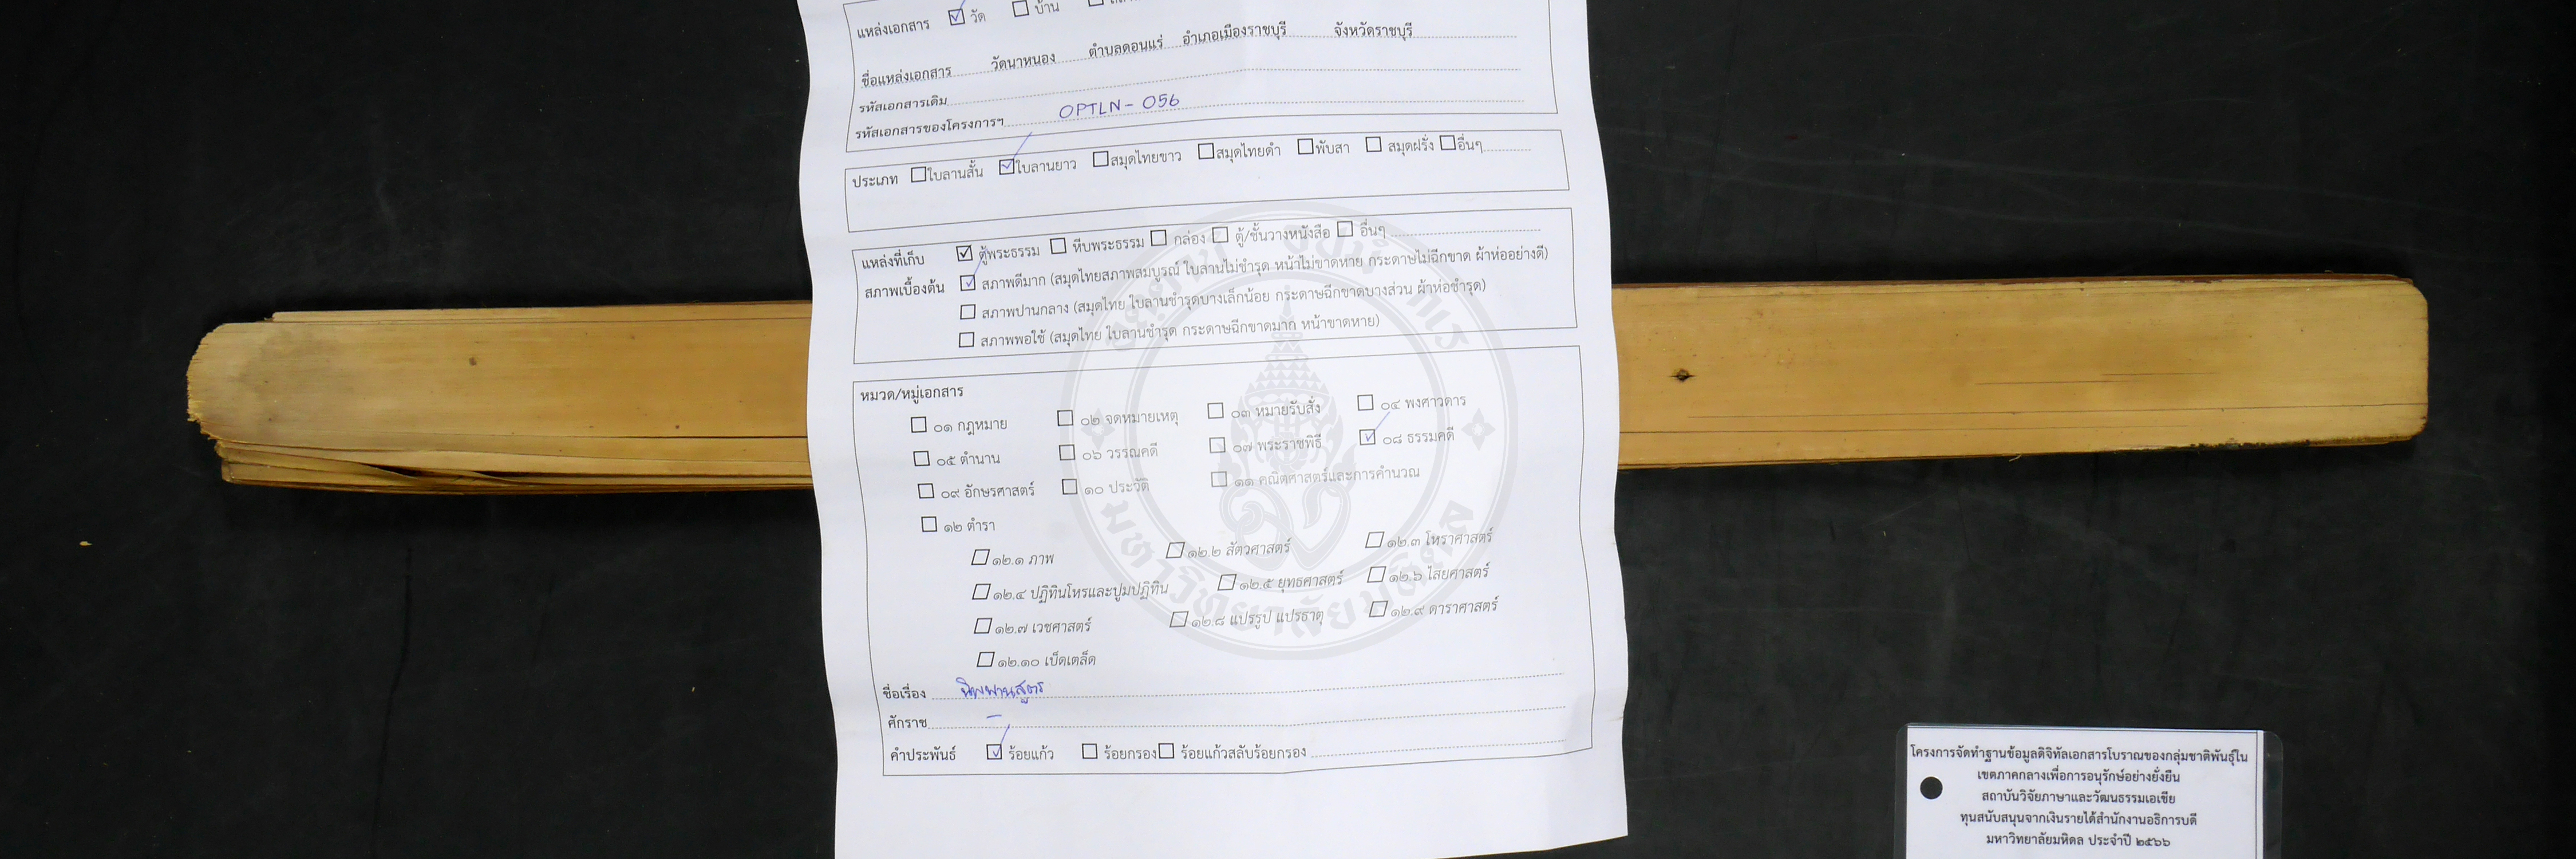 แหล่งเอกสาร ☑ วัด ☐ บ้าน ☐
ชื่อแหล่งเอกสาร วัดนาหนอง ตำบลดอนแร่ อำเภอเมืองราชบุรี จังหวัดราชบุรี
รหัสเอกสารเดิม
รหัสเอกสารของโครงการฯ OPTLN - 056
ประเภท ☐ ใบลานสั้น ☑ ใบลานยาว ☐ สมุดไทยขาว ☐ สมุดไทยดำ ☐ พับสา ☐ สมุดฝรั่ง ☐ อื่นๆ
แหล่งที่เก็บ ☑ ตู้พระธรรม ☐ หีบพระธรรม ☐ กล่อง ☐ ตู้/ชั้นวางหนังสือ ☐ อื่นๆ
สภาพเบื้องต้น ☑ สภาพดีมาก (สมุดไทยสภาพสมบูรณ์ ใบลานไม่ชำรุด หน้าไม่ขาดหาย กระดาษไม่ฉีกขาด ผ้าห่ออย่างดี)
☐ สภาพปานกลาง (สมุดไทย ใบลานชำรุดบางเล็กน้อย กระดาษฉีกขาดบางส่วน ผ้าห่อชำรุด)
☐ สภาพพอใช้ (สมุดไทย ใบลานชำรุด กระดาษฉีกขาดมาก หน้าขาดหาย)
หมวด/หมู่เอกสาร
☐ ๐๑ กฎหมาย ☐ ๐๒ จดหมายเหตุ ☐ ๐๓ หมายรับสั่ง ☐ ๐๔ พงศาวดาร
☐ ๐๕ ตำนาน ☐ ๐๖ วรรณคดี ☐ ๐๗ พระราชพิธี ☑ ๐๘ ธรรมคดี
☐ ๐๙ อักษรศาสตร์ ☐ ๑๐ ประวัติ ☐ ๑๑ คณิตศาสตร์และการคำนวณ
☐ ๑๒ ตำรา
☐ ๑๒.๑ ภาพ ☐ ๑๒.๒ สัตวศาสตร์ ☐ ๑๒.๓ โหราศาสตร์
☐ ๑๒.๔ ปฏิทินโหรและปูมปฏิทิน ☐ ๑๒.๕ ยุทธศาสตร์ ☐ ๑๒.๖ ไสยศาสตร์
☐ ๑๒.๗ เวชศาสตร์ ☐ ๑๒.๘ แปรรูป แปรธาตุ ☐ ๑๒.๙ ดาราศาสตร์
☐ ๑๒.๑๐ เบ็ดเตล็ด
ชื่อเรื่อง นิพพานสูตร
ศักราช –
คำประพันธ์ ☑ ร้อยแก้ว ☐ ร้อยกรอง ☐ ร้อยแก้วสลับร้อยกรอง
มหาวิทยาลัยมหิดล
โครงการจัดทำฐานข้อมูลดิจิทัลเอกสารโบราณของกลุ่มชาติพันธุ์ใน
เขตภาคกลางเพื่อการอนุรักษ์อย่างยั่งยืน
สถาบันวิจัยภาษาและวัฒนธรรมเอเชีย
ทุนสนับสนุนจากเงินรายได้สำนักงานอธิการบดี
มหาวิทยาลัยมหิดล ประจำปี ๒๕๖๖